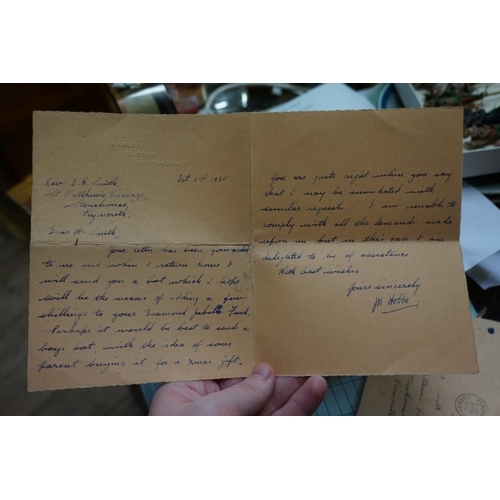 Rev. E. H. Smith, Oct. 5th 1955
St. Matthew's Vicarage,
Stonehouse,
Plymouth.
Dear Mr Smith,
Your letter has been forwarded
to me and when I return home I
will send you a bat which I hope
will be the means of adding a few
shillings to your Diamond Jubilee Fund.
Perhaps it would be best to send a
boys bat, with the idea of some
parent buying it for a Xmas gift.
You are quite right when you say
that I may be inundated with
similar requests. I am unable to
comply with all the demands made
upon me but in this case I am
delighted to be of assistance.
With best wishes
Yours sincerely
JB Hobbs